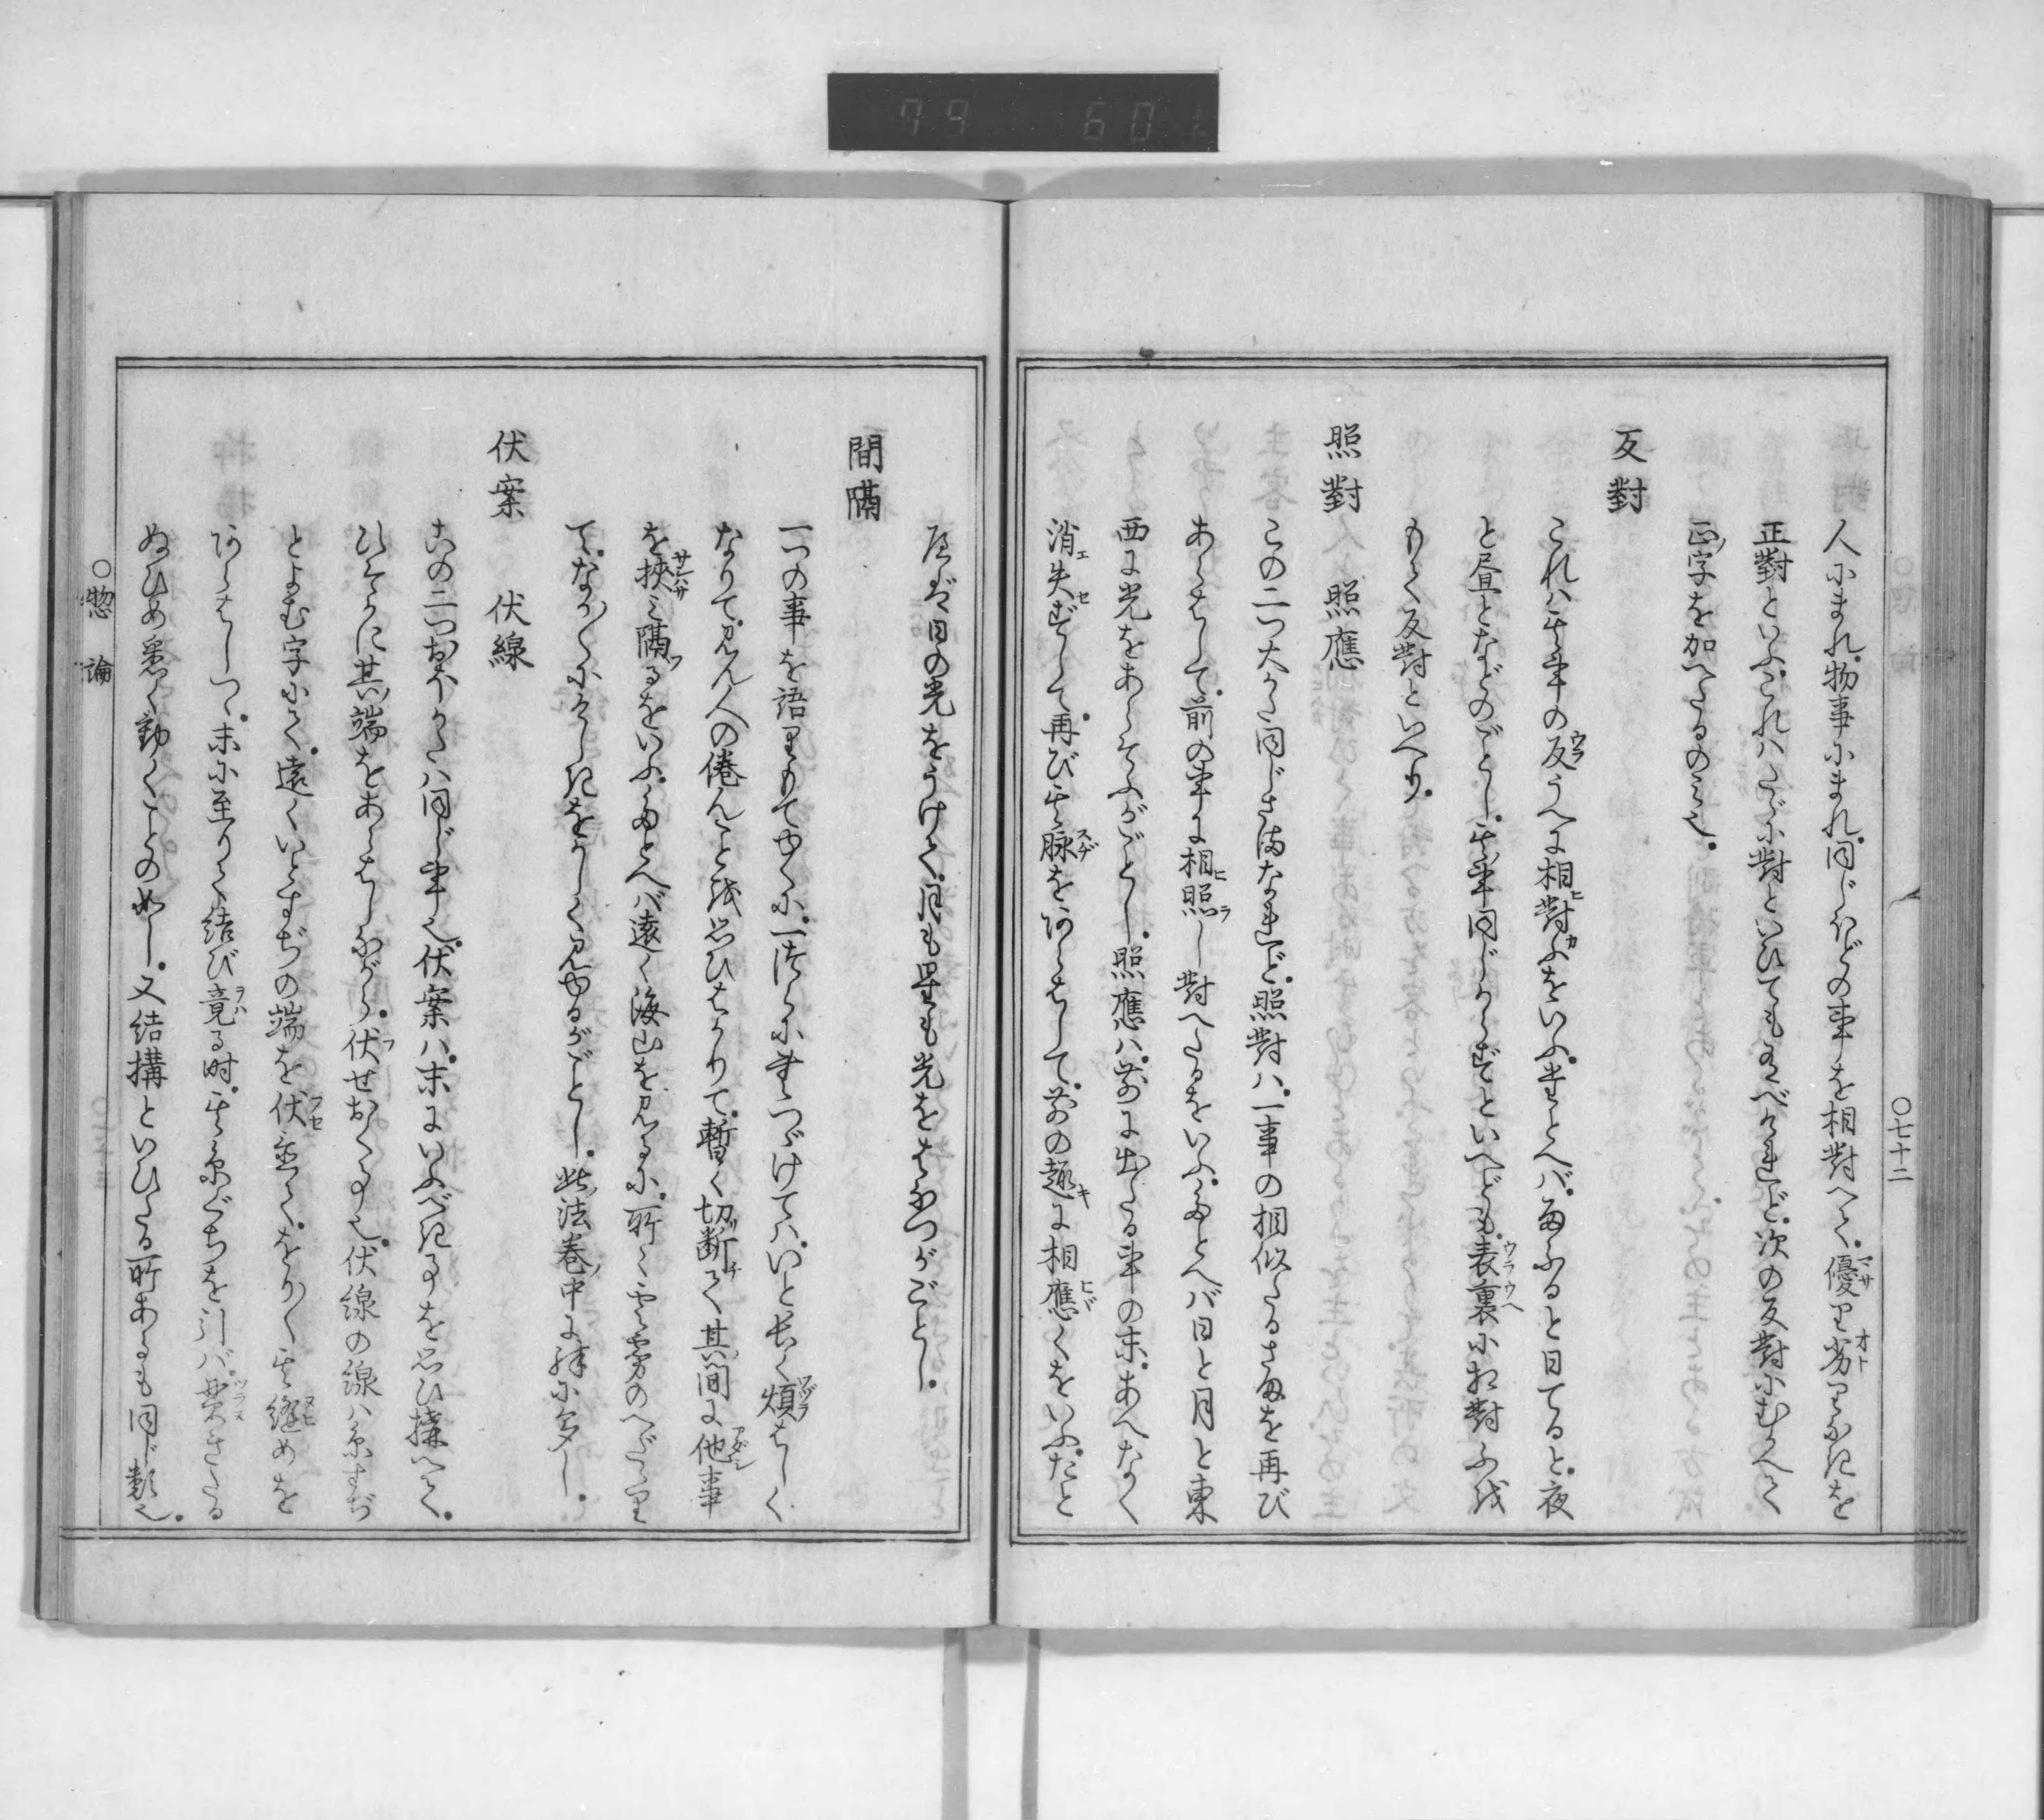 79 601
〇七十二
人にまれ。物事にまれ。同じほどの事を相對へて。優り劣りなきを
正對といふ。これハたゞに對といひても有べけれど。次の反對にむかへて
正ノ字を加へたるのミ也。
反對
これハ其事の反うへに相對ふをいふ。たとへバ。雨ふると日てると。夜
と昼となどのごとし。其事同じからずといへども。表裏に相對ふを
もて反對といへり。
照對 照應
この二つ大かた同じさまなれど。照對ハ。一事の相似たるさまを再び
あらはして。前の事に相照し對へたるをいふ。たとへバ日と月と東
西に光をあらそふがごとし。照應ハ。前に出たる事の末。あへなく
消失ずして。再び其脉をあらはして。前の趣に相應くをいふ。たと
へば。日の光をうけて。月も星も光をはなつがごとし。
間隔
一つの事を語りもてゆくに。一すぢに書つゞけてハ。いと長く煩はしく
なりて。見ん人の倦んことを思ひはかりて。暫く切断て其間に他事
を挾ミ隔るをいふ。たとへバ遠く海山を見るに。所々雲霧のへだゝり
て。なか〳〵にけしきをまして見ゆるがごとし。此法巻ノ中に殊に多し。
伏案 伏線
この二つおほかたハ同じ事也。伏案ハ。末にいふべき事を思ひ構へて。
ひそかに其端をあらはしながら。伏せおく事也。伏線の線ハ糸すぢ
とよむ字にて。遠くいとすぢの端を伏置て。をり〳〵其縫めを
あらはしつゝ。末に至りて結び竟る時。其糸ぐちを引バ。貫きたる
ぬひめ悉く動くことの如し。又結構といひたる所あるも同じ類也。
〇惣論